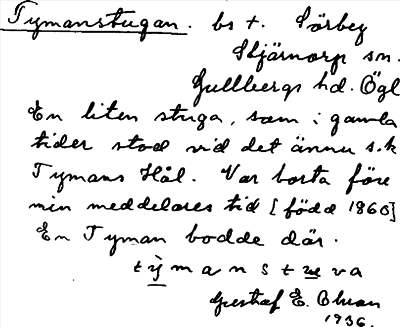 Tymanstugan. bs t. Sörbey
Stjärnorp sn.
Gullbergs hd. Ögl
En liten stuga, som i gamla
tider stod vid det ännu s.k
Tymans Hål. Var borta före
min meddelares tid [född 1860]
En Tyman bodde där.
tỳmanstuva
Gustaf E. Olsson
1936.